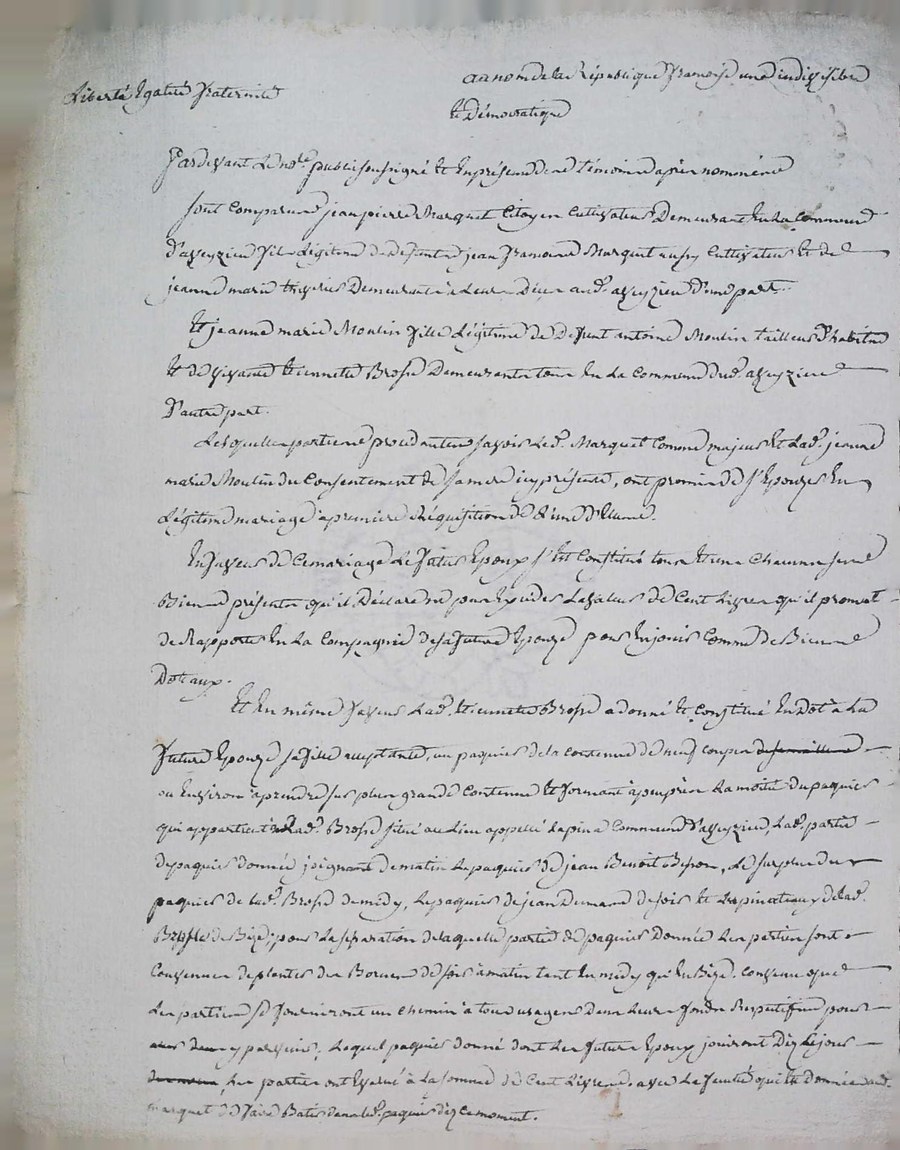 Liberté Egalité Fraternité
au nom de la République françoise une indivisible
et Démocratique
Pardevant le no.re public soussigné et en présence de témoins après nommés
sont comparus jean pierre Marquet Citoyen Cultivateur Demeurant en la Commune
d'aveyzieu fils légitime de Defunt jean françois Marquet aussy Cultivateur et de
jeanne marie Demeurante à leur Dire aud. aveyzieu d'une part.
Et jeanne marie Moulin fille légitime de Defunt antoine Moulin tailleur d'habits
et de vivante Etiennette Brosse Demeurantes tous en la Commune dud. aveyzieu
D'autre part.
Lesquelles parties procedantes savoir led. Marquet Comme majeur et lad. jeanne
marie Moulin du Consentement de sa mere icy présente, ont promis de s'Epouzer en
légitime mariage à premiere Réquisition de l'une d'elles.
En faveur de Ce mariage le futur Epoux s'est Constitué tous et un Chacun ses
Biens présents qu'il Déclare ne pas Exceder la valeur de Cent Livres qu'il promet
de Rapporter en la Compagnie de sa future Epouze pour en jouir Comme de Biens
Dotaux.
Et en même faveur lad. Etiennette Brosse a donné et Constitué en Dot à la
future Epouze sa fille acceptante, un paquier de la contenue de neuf coupes
ou Environ à prendre sur plus grande Contenue et formant à peu près la moitié du paquier
qui appartient à lad. Brosse situé au Lieu appellé Lapina Commune d'aveyzieu, lad. partie
de paquier donnée joignant de matin le paquier de jean Benoit, le surplus du
paquier de lad. Brosse de midy, le paquier de jean de soir et de lad.
Brosse de Bize; pour la séparation de laquelle partie de paquier Donnée les parties sont
Convenues de planter des Bornes de soir à matin tant en midy qu'en Bize. convenu que
les parties se fourniront un chemin à tous usages Dans leurs fonds Respectifs pour
y parvenir, lequel paquier donné dont les futurs Epoux jouiront Dez ce jour
les parties ont évalué à la somme de Cent Livres, avec la faculté qu'elle donne aud.
marquet de faire Batir dans led. paquier dez ce moment.